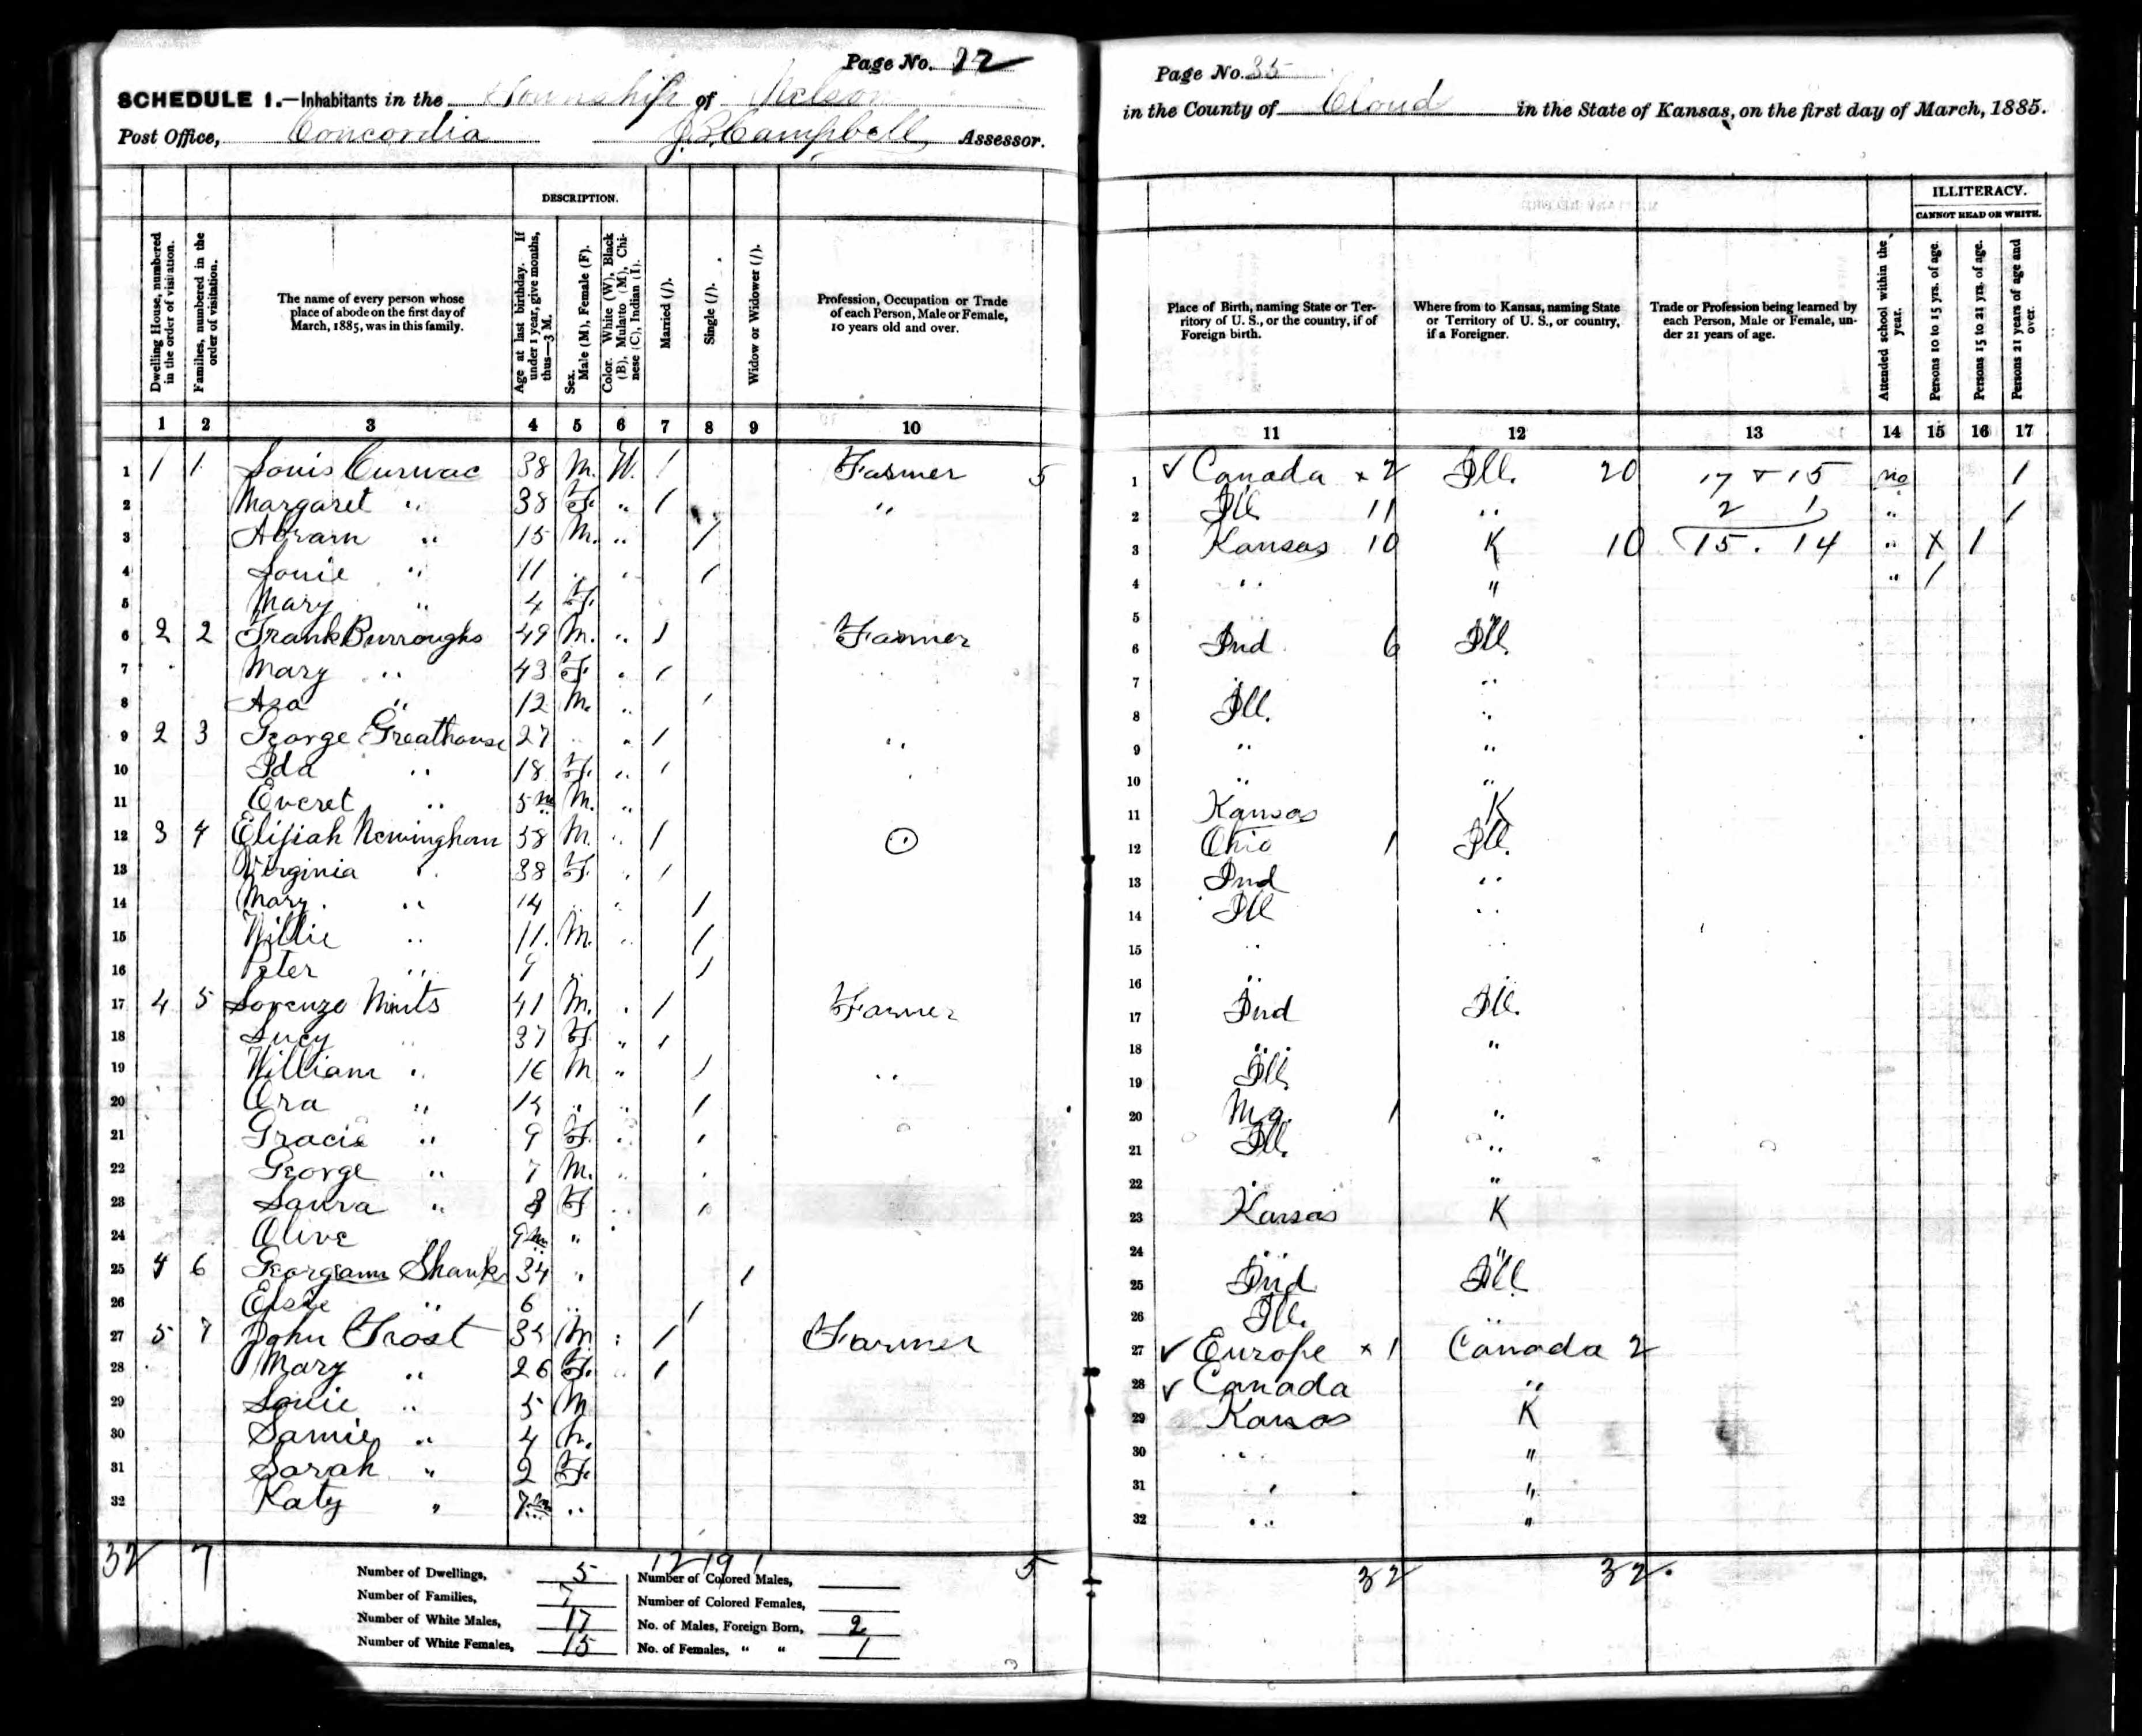 Page No. 12
SCHEDULE 1.—Inhabitants in the Township of Nelson
Post Office, Concordia J. B. Campbell, Assessor.
DESCRIPTION.
Dwelling House, numbered in the order of visitation.
Families, numbered in the order of visitation.
The name of every person whose place of abode on the first day of March, 1885, was in this family.
Age at last birthday. If under 1 year, give months, thus—3 M.
Sex. Male (M), Female (F).
Color. White (W), Black (B), Mulatto (M), Chinese (C), Indian (I).
Married (/).
Single (/).
Widow or Widower (/).
Profession, Occupation or Trade of each Person, Male or Female, 10 years old and over.
1 2 3 4 5 6 7 8 9 10
1 1 1 Louis 38 M. W. / Farmer 5
2 Margaret " 38 F. " / "
3 Abram " 15 M. " /
4 Louie " 11 " " /
5 Mary " 4 F.
6 2 2 Frank Burroughs 49 M. " / Farmer
7 Mary " 43 F. " /
8 Asa " 12 M. " /
9 2 3 George Greathouse 27 " / "
10 Ida " 18 F. " /
11 Everet " 5 m M. "
12 3 4 Elijiah 38 M. " /
13 Virginia " 38 F. " /
14 Mary " 14 " /
15 Willie " 11 M. " /
16 Peter " 9 " /
17 4 5 Lorenzo 41 M. " / Farmer
18 Lucy 37 F. " /
19 William " 16 M " / "
20 Ora " " " /
21 Gracie " 9 F. " /
22 George " 7 M. " /
23 Laura " F " /
24 Olive 9 m "
25 4 6 Georgann Shanks 34 " /
26 Elsie " 6 " /
27 5 7 John Trost M " / Farmer
28 Mary " 26 F. " /
29 Louie " 5 M
30 Samie " 4 M.
31 Sarah " 2 F.
32 Katy " 7 m "
32 7 12 19 1 5
Number of Dwellings, 5
Number of Families, 7
Number of White Males, 17
Number of White Females, 15
Number of Colored Males,
Number of Colored Females,
No. of Males, Foreign Born, 2
No. of Females, " " 1
Page No. 35
in the County of Cloud in the State of Kansas, on the first day of March, 1885.
ILLITERACY.
CANNOT READ OR WRITE.
Place of Birth, naming State or Territory of U. S., or the country, if of Foreign birth.
Where from to Kansas, naming State or Territory of U. S., or country, if a Foreigner.
Trade or Profession being learned by each Person, Male or Female, under 21 years of age.
Attended school within the year.
Persons 10 to 15 yrs. of age.
Persons 15 to 21 yrs. of age.
Persons 21 years of age and over.
11 12 13 14 15 16 17
1 ✓ Canada x 2 Ill. 20 17 + 15 no /
2 Ill 11 " 2 1 " /
3 Kansas 10 K 10 15 . 14 " X /
4 " " " /
5 " "
6 Ind 6 Ill
7 " "
8 Ill. "
9 " "
10 " "
11 Kansas K
12 Ohio 1 Ill.
13 Ind "
14 Ill "
15 " "
16 " "
17 Ind Ill.
18 " "
19 Ill
20 1 "
21 Ill. "
22 " "
23 Kansas K
24 " "
25 Ind Ill
26 Ill. "
27 ✓ Europe x 1 Canada 2
28 ✓ Canada "
29 Kansas K
30 " "
31 " "
32 " "
32 32.